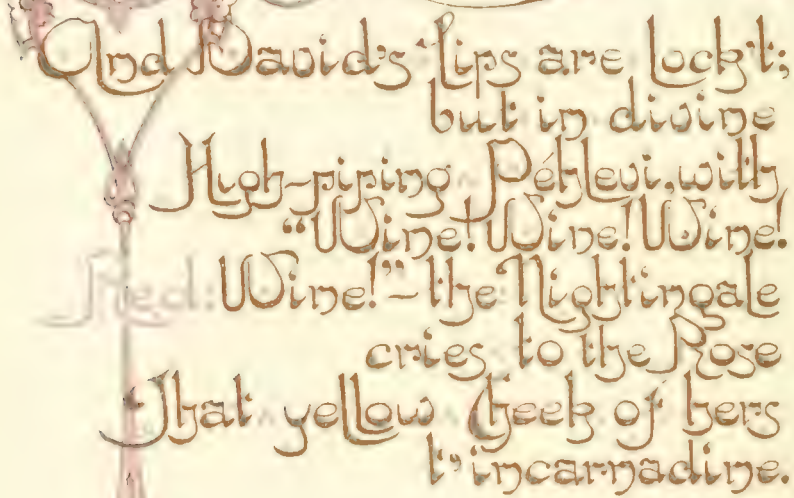 And David's Lips are lock't;
but in divine
High-piping Péhlevi, with
"Wine! Wine! Wine!
Red Wine!"—the Nightingale
cries to the Rose
That yellow Cheek of hers
t'incarnadine.